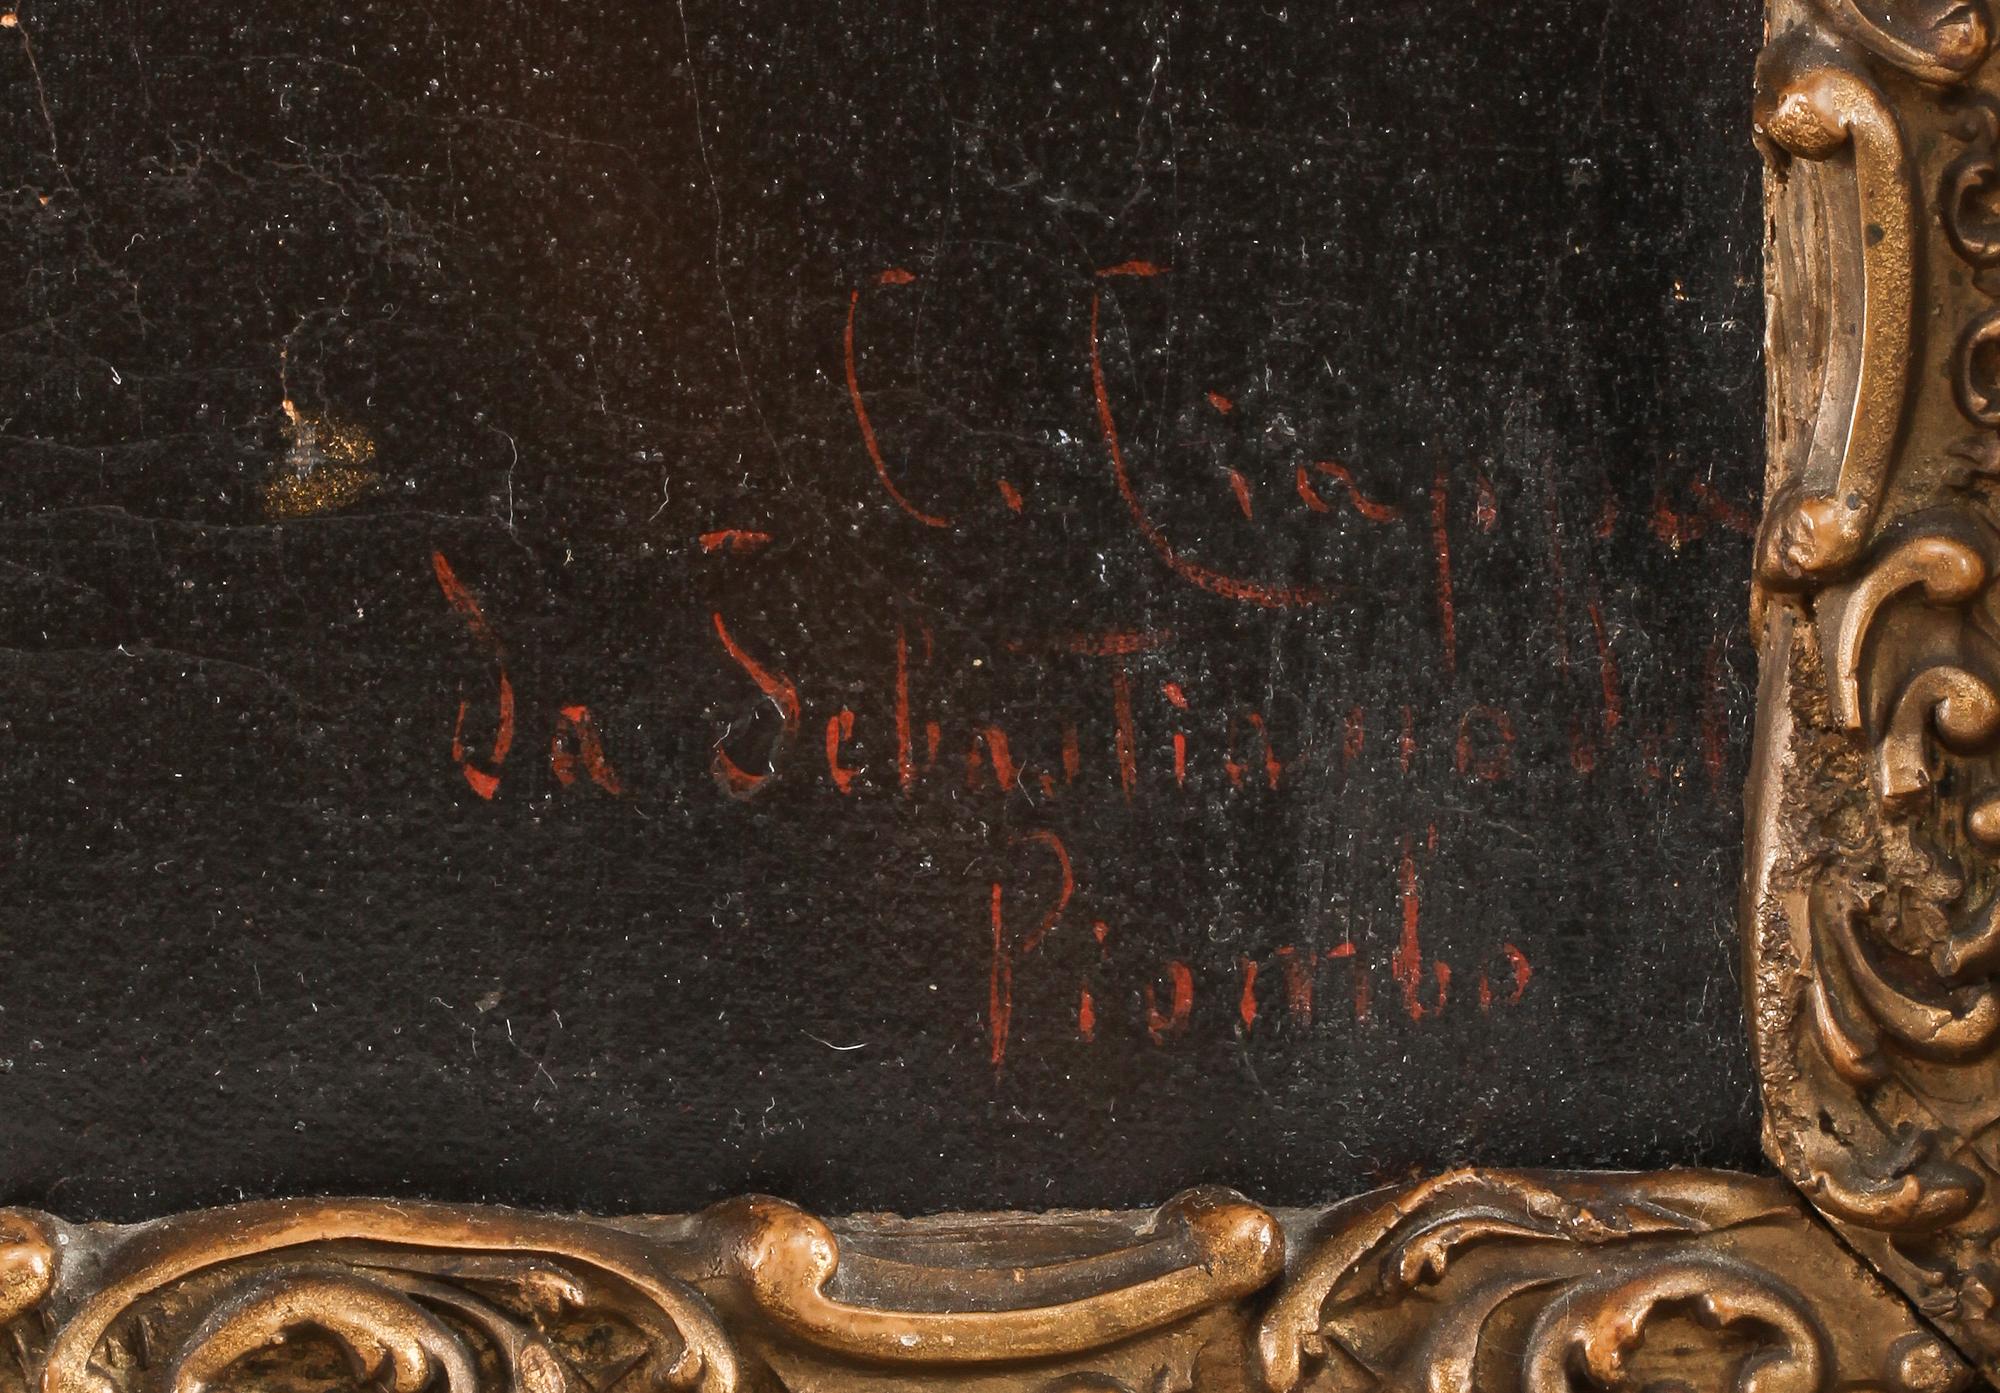 C.
da Sebastiano del
Piombo